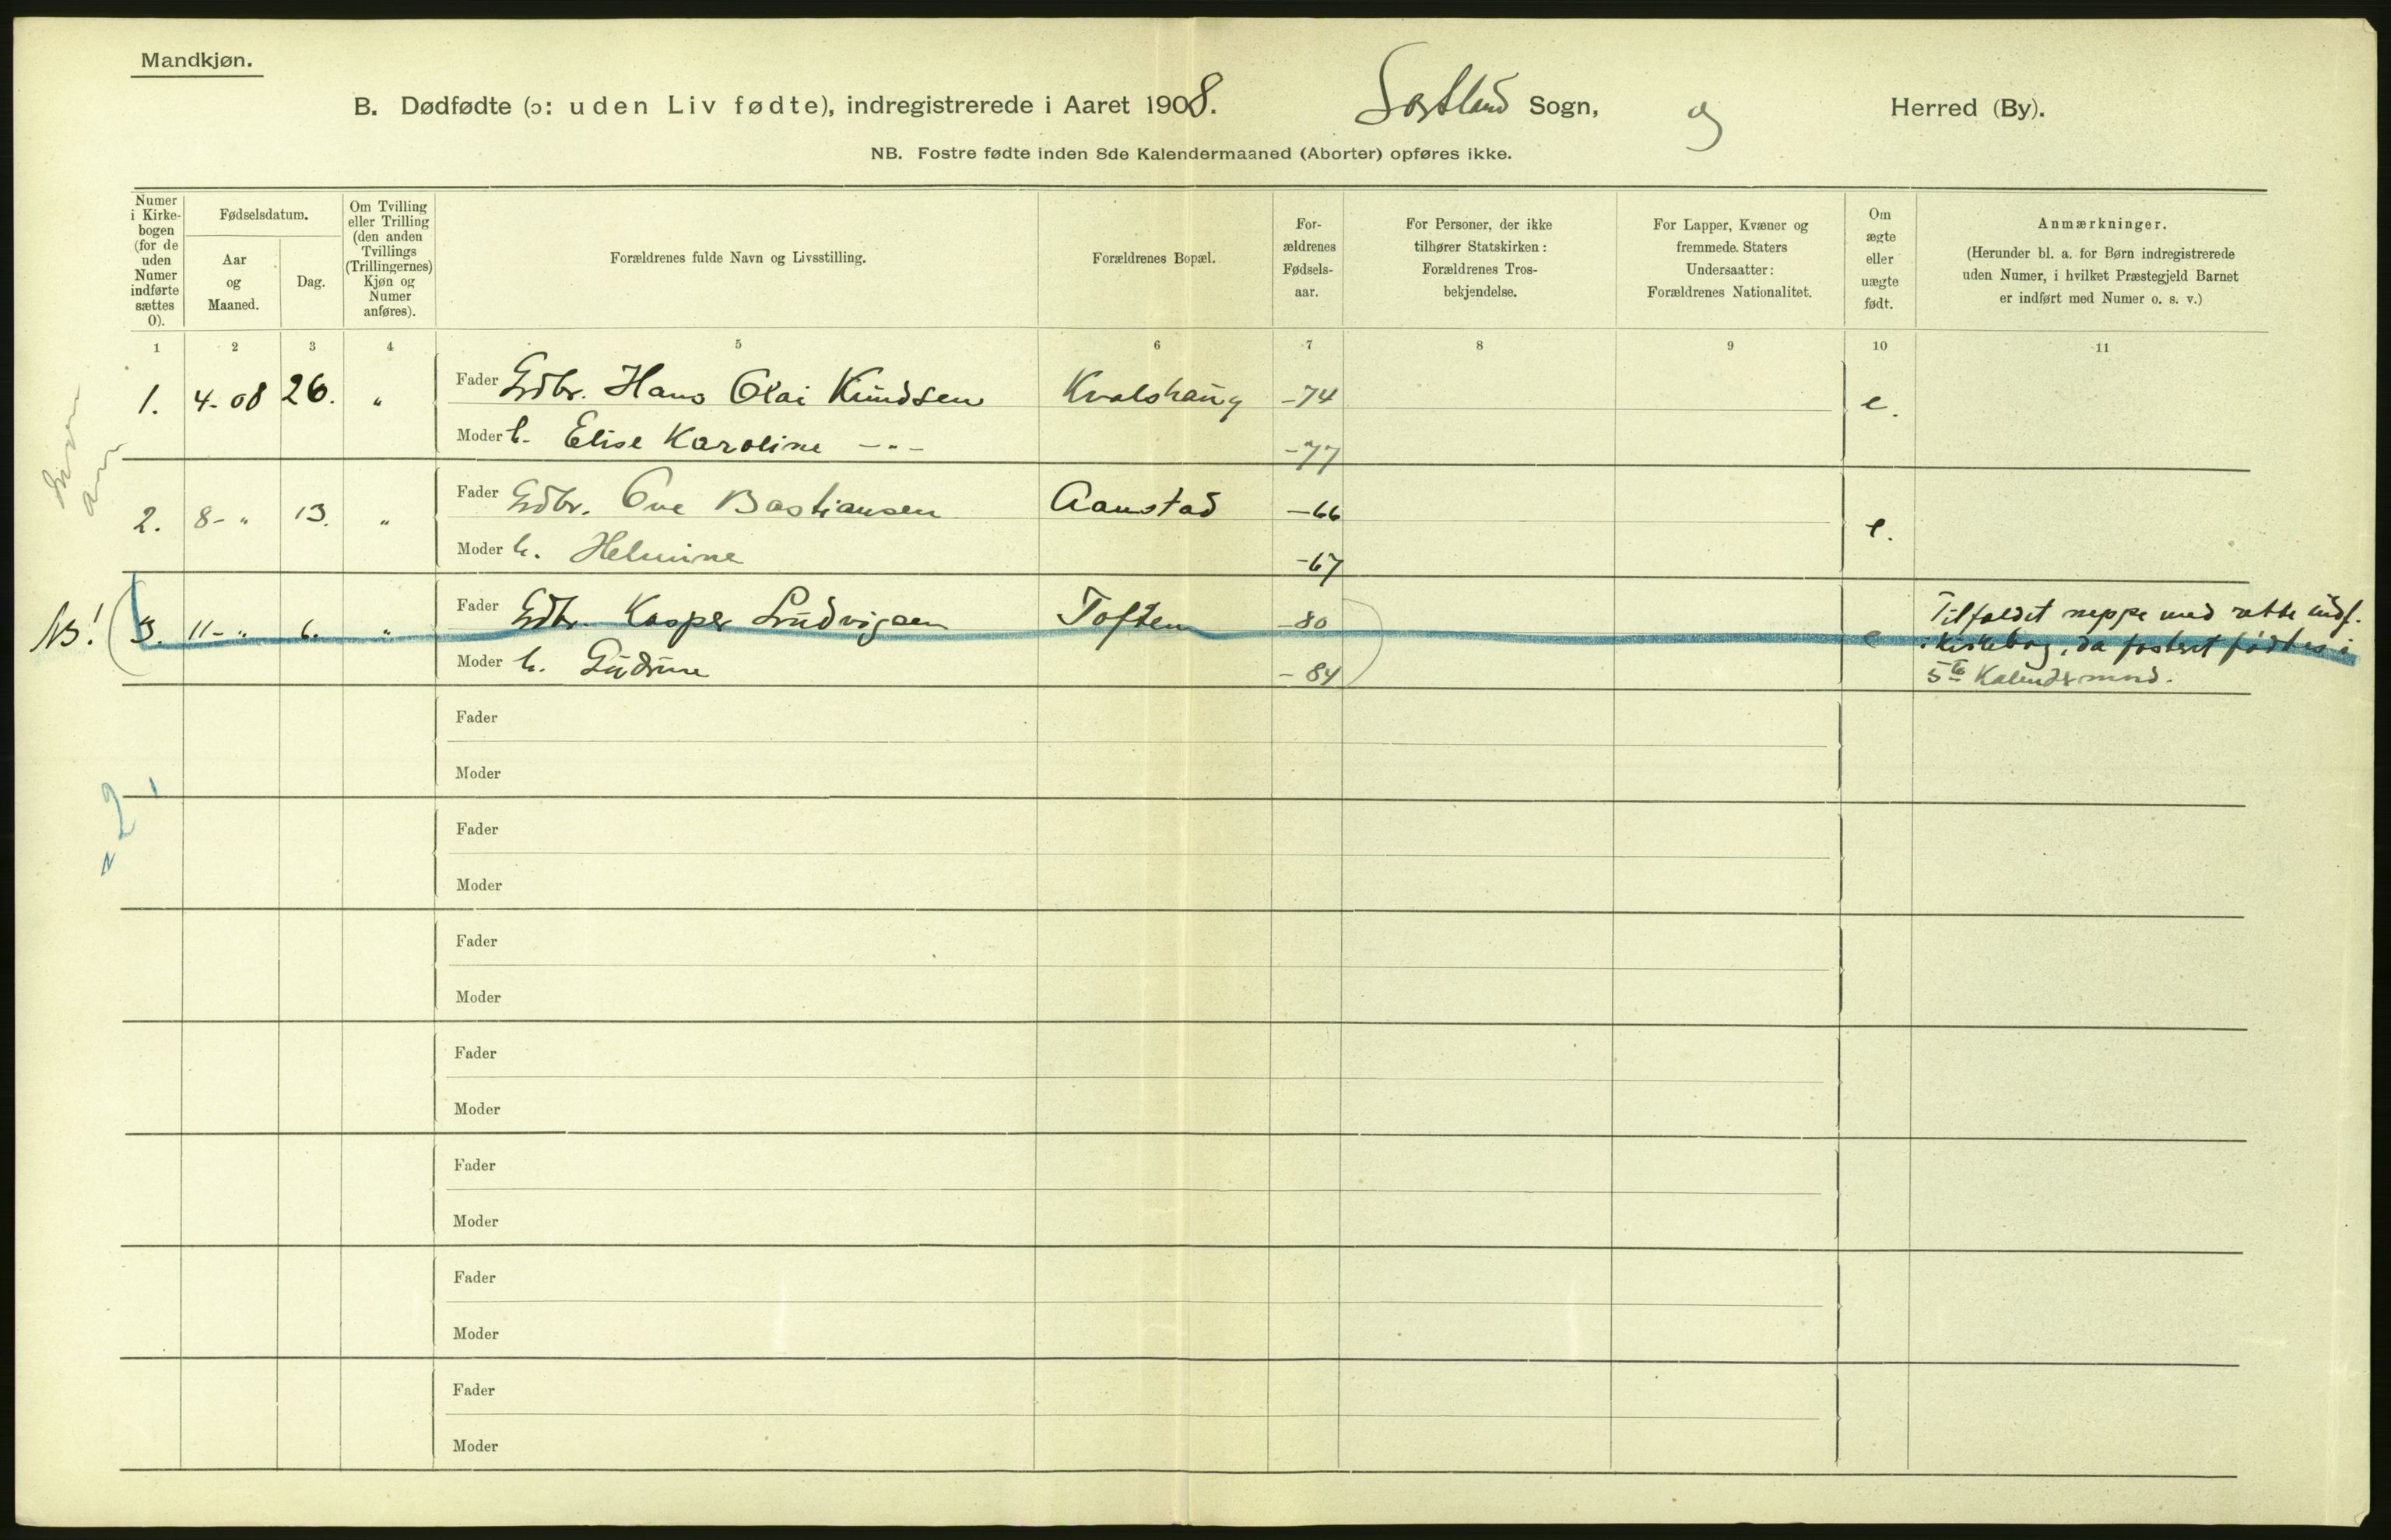 Mandkjøn.
B. Dødfødte (ɔ: uden Liv fødte), indregistrerede i Aaret 1908. Sortland Sogn, og Herred (By).
NB. Fostre fødte inden 8de Kalendermaaned (Aborter) opføres ikke.
Numer i Kirkebogen (for de uden Numer indførte sættes 0).
Fødselsdatum.
Aar og Maaned.
Dag.
Om Tvilling eller Trilling (den anden Tvillings (Trillingernes) Kjøn og Numer anføres).
Forældrenes fulde Navn og Livsstilling.
Forældrenes Bopæl.
Forældrenes Fødselsaar.
For Personer, der ikke tilhører Statskirken: Forældrenes Trosbekjendelse.
For Lapper, Kvæner og fremmede Staters Undersaatter: Forældrenes Nationalitet.
Om ægte eller uægte født.
Anmærkninger.
(Herunder bl. a. for Børn indregistrerede uden Numer, i hvilket Præstegjeld Barnet er indført med Numer o. s. v.)
1 2 3 4 5 6 7 8 9 10 11
1. 4-08 26. " Fader Gdbr. Hans Olai Knudsen Kvalshaug -74 e.
Moder h. Elise Karoline -"- -77
2. 8- " 13. " Fader Gdbr. Ove Bastiansen Aanstad -66 e.
Moder h. Helmine -67
NB! 3. 11- " 6. " Fader Gdbr. Kasper Ludvigsen Toften -80 e
Moder h. Gudrune -84
Tilfældet neppe med rette indf.
i Kirkebog, da fosteret fødtes i
5te Kalendermnd.
Fader
Moder
= 2
Fader
Moder
Fader
Moder
Fader
Moder
Fader
Moder
Fader
Moder
Fader
Moder